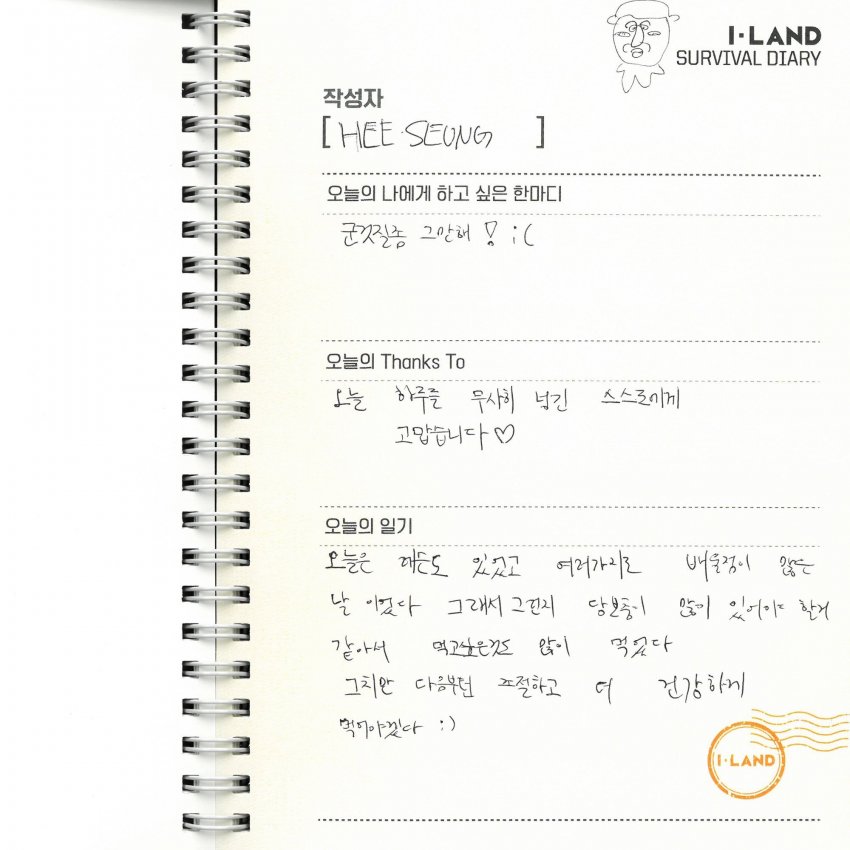 I·LAND
SURVIVAL DIARY
작성자
[ HEE·SEUNG ]
오늘의 나에게 하고 싶은 한마디
군것질좀 그만해 ! ;(
오늘의 Thanks To
오늘 하루를 무사히 넘긴 스스로에게
고맙습니다♡
오늘의 일기
오늘은 댄스도 있었고 여러가지로 배울점이 많은
날 이었다 그래서 그런지 당보충이 많이 있어야 할거
같아서 먹고싶은것도 많이 먹었다
그치만 다음부턴 조절하고 더 건강하게
먹어야겠다 :)
I·LAND